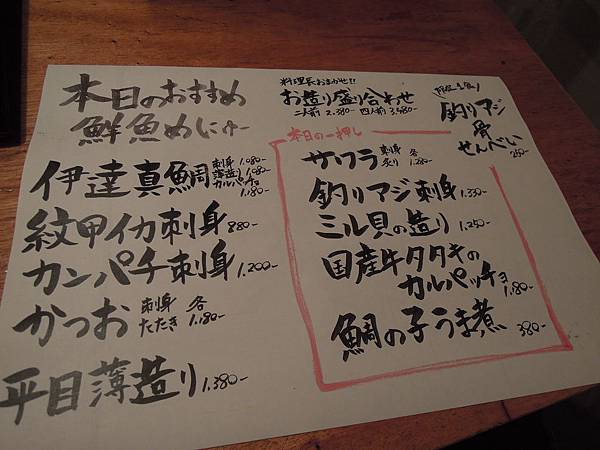 本日のおすすめ
鮮魚めにゅー
伊達真鯛 刺身 1.080-
薄造り 1.080-
カルパッチョ 1.180-
紋甲イカ刺身 880-
カンパチ刺身 1.200-
かつお 刺身 たたき 各 1.180-
平目薄造り 1.380-
料理長おまかせ!!
お造り盛り合わせ
二人前 2.380- 四人前 3.480-
本日の一押し
サワラ 刺身 炙り 各 1.280-
釣りアジ刺身 1.330-
ミル貝の造り 1.250-
国産牛タタキの
カルパッチョ 1.180-
鯛の子うま煮 380-
釣りアジ
骨
せんべい
250-